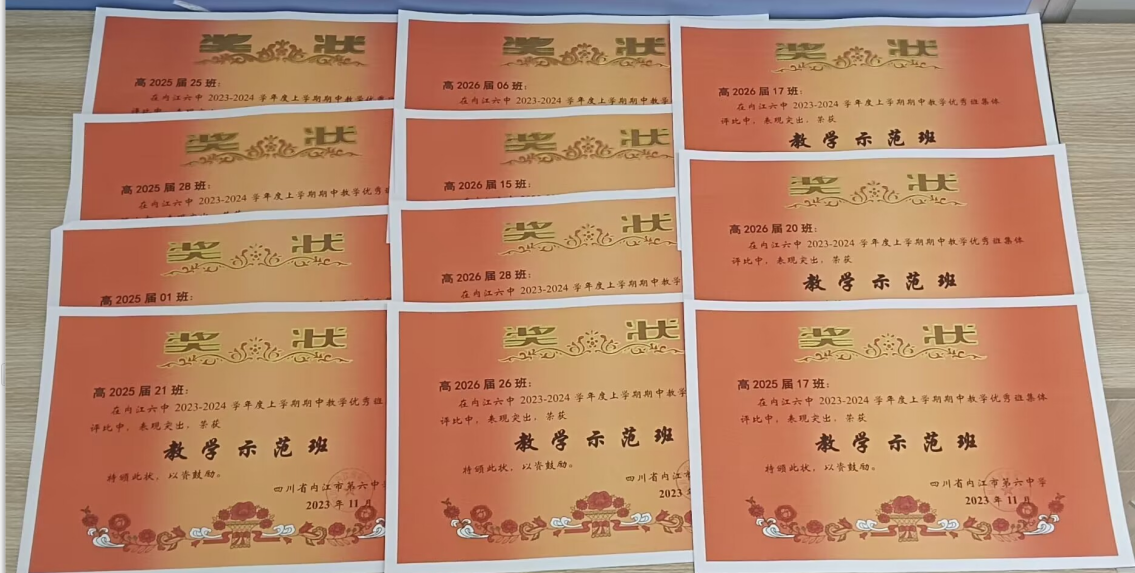 奖 状
高 2025 届 25 班：
在内江六中 2023-2024 学年度上学期期中教学优秀
奖 状
高 2025 届 28 班：
在内江六中 2023-2024 学年度上学期期中教学优秀
奖 状
高 2025 届 01 班：
奖 状
高 2025 届 21 班：
在内江六中 2023-2024 学年度上学期期中教学优秀班
评比中，表现突出，荣获
教 学 示 范 班
特颁此状，以资鼓励。
四川省内江市第六中学
2023 年 11 月
奖 状
高 2026 届 06 班：
在内江六中 2023-2024 学年度上学期期中教学
奖 状
高 2026 届 15 班：
奖 状
高 2026 届 28 班：
在内江六中 2023-2024 学年度上学期期中教学
奖 状
高 2026 届 26 班：
在内江六中 2023-2024 学年度上学期期中教学
评比中，表现突出，荣获
教 学 示 范 班
特颁此状，以资鼓励。
四川省内江市
2023
奖 状
高 2026 届 17 班：
在内江六中 2023-2024 学年度上学期期中教学优秀班集体
评比中，表现突出，荣获
教 学 示 范 班
奖 状
高 2026 届 20 班：
在内江六中 2023-2024 学年度上学期期中教学优秀班集体
评比中，表现突出，荣获
教 学 示 范 班
奖 状
高 2025 届 17 班：
在内江六中 2023-2024 学年度上学期期中教学优秀班集体
评比中，表现突出，荣获
教 学 示 范 班
特颁此状，以资鼓励。
四川省内江市第六中学
2023 年 11 月